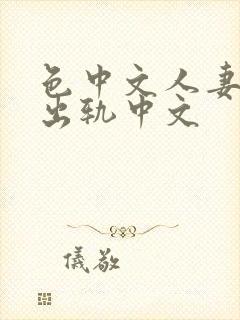 色中文人妻
出轨中文
儀敬